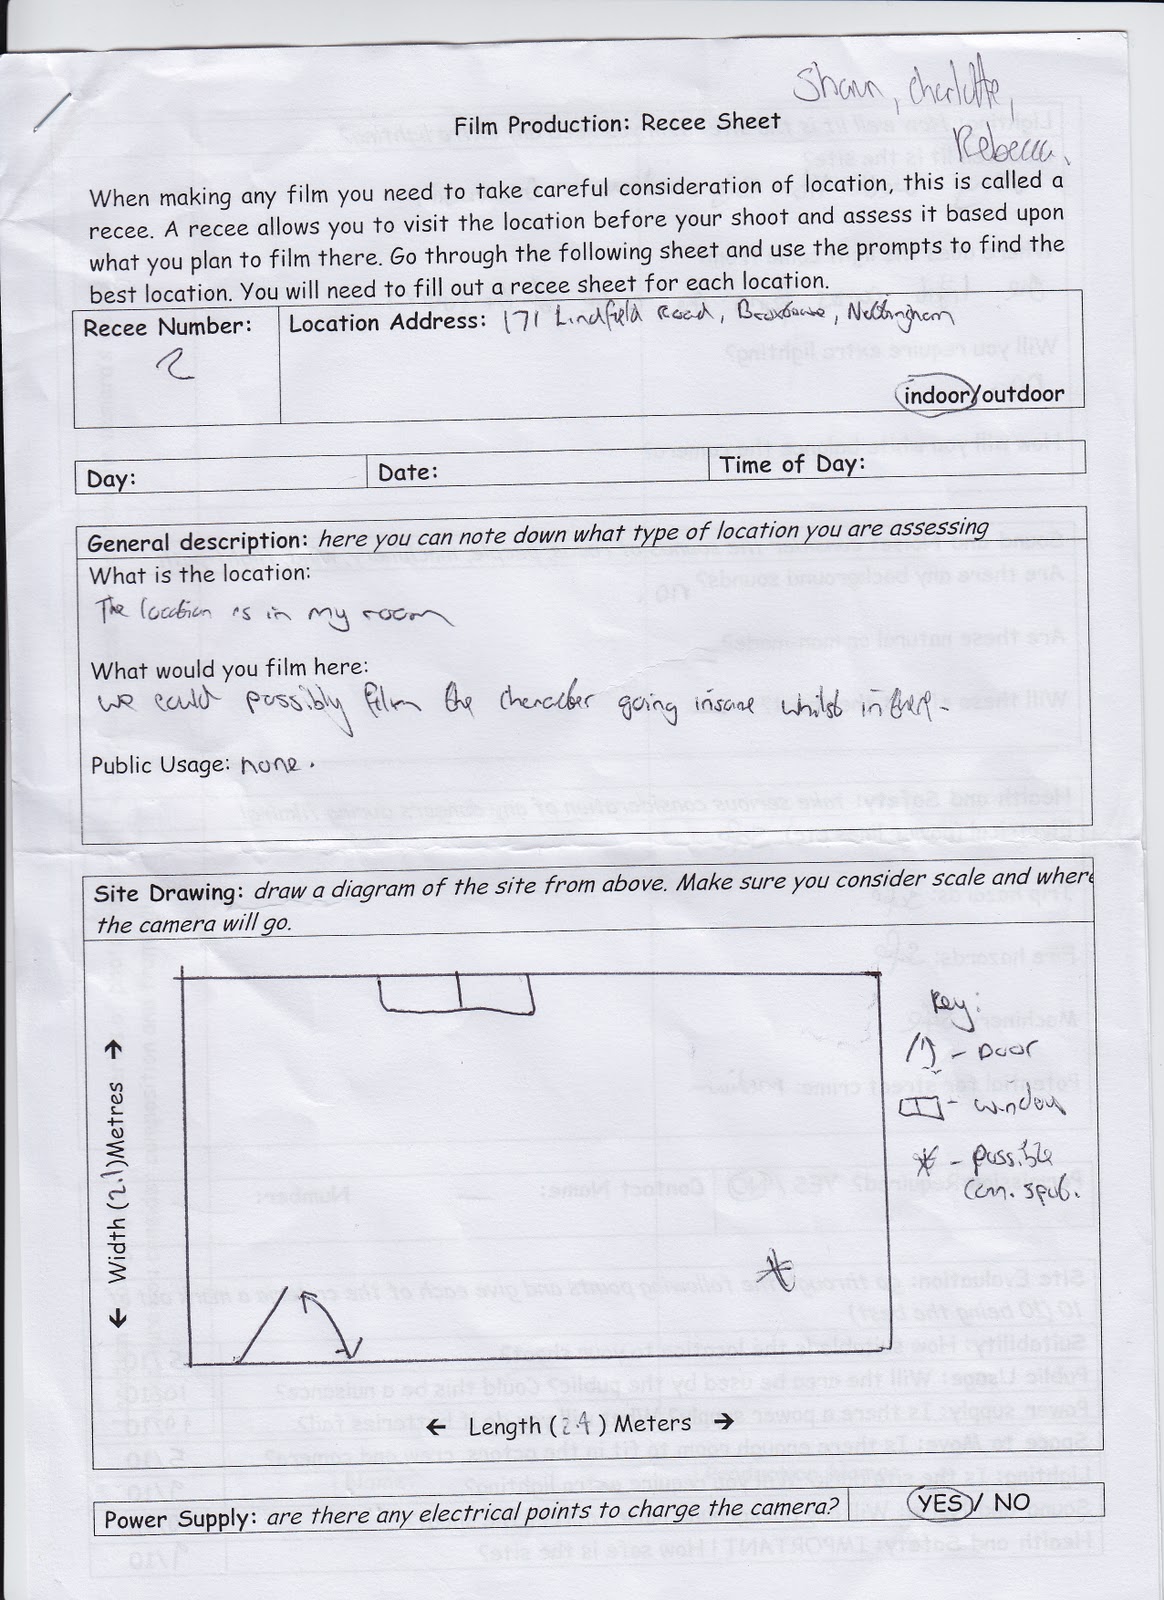 Shaun, Charlotte,
Film Production: Recee Sheet
Rebecca.
When making any film you need to take careful consideration of location, this is called a
recee. A recee allows you to visit the location before your shoot and assess it based upon
what you plan to film there. Go through the following sheet and use the prompts to find the
best location. You will need to fill out a recee sheet for each location.
Recee Number: Location Address: 171 Lindfield Road, Nottingham
2
indoor/outdoor
Day: Date: Time of Day:
General description: here you can note down what type of location you are assessing
What is the location:
The location is in my room
What would you film here:
we could possibly film the character going insane whilst in there.
Public Usage: none.
Site Drawing: draw a diagram of the site from above. Make sure you consider scale and where
the camera will go.
Key:
- Door
- window
- possible
cam. spot.
← Width (2.1) Metres →
← Length (2.4) Meters →
Power Supply: are there any electrical points to charge the camera? YES / NO